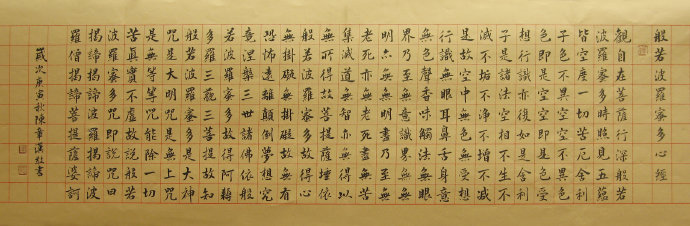 般若波羅蜜多心經
觀自在菩薩行深般若
波羅蜜多時照見五蘊
皆空度一切苦厄舍利
子色不異空空不異色
色即是空空即是色受
想行識亦復如是舍利
子是諸法空相不生不
滅不垢不淨不增不減
是故空中無色無受想
行識無眼耳鼻舌身意
無色聲香味觸法無眼
界乃至無意識界無無
明亦無無明盡乃至無
老死亦無老死盡無苦
集滅道無智亦無得以
無所得故菩提薩埵依
般若波羅蜜多故得心
無掛礙無掛礙故無有
恐怖遠離顛倒夢想究
竟涅槃三世諸佛依般
若波羅蜜多故得阿耨
多羅三藐三菩提故知
般若波羅蜜多是大神
咒是大明咒是無上咒
是無等等咒能除一切
苦真實不虛故說般若
波羅蜜多咒即說咒曰
揭諦揭諦波羅揭諦波
羅僧揭諦菩提薩婆訶
歲次庚寅秋陳章漢書